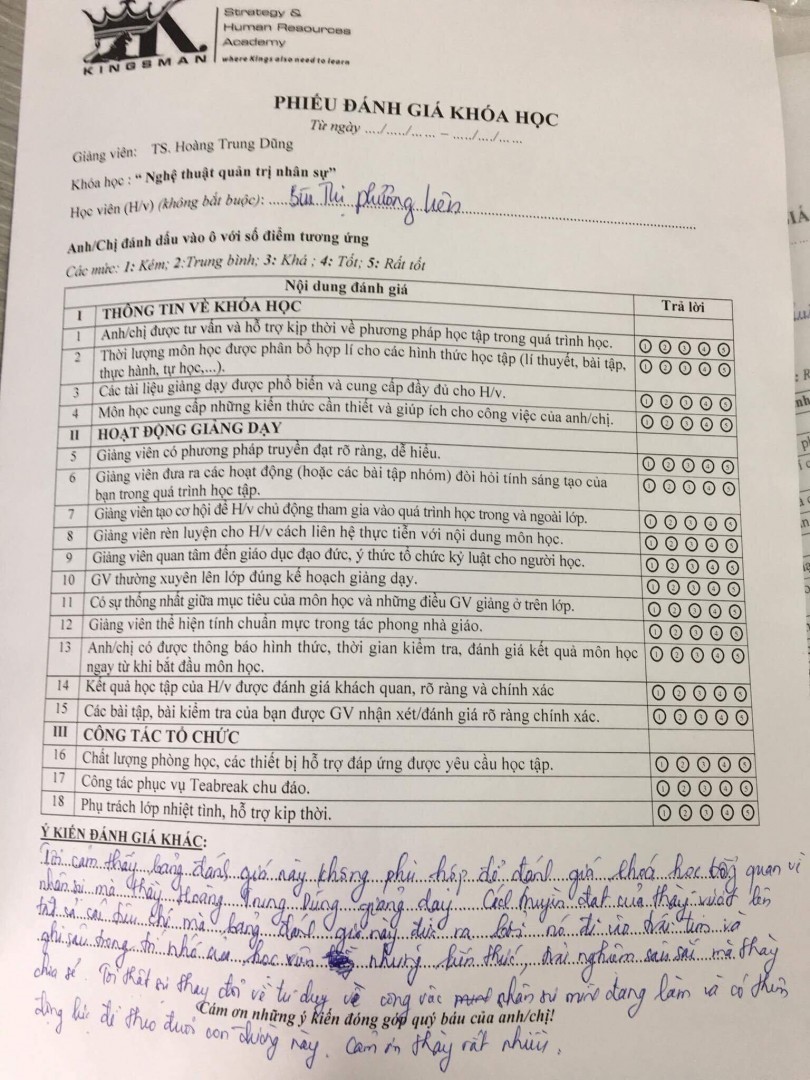 KINGSMAN
Strategy &
Human Resources
Academy
where Kings also need to learn
PHIẾU ĐÁNH GIÁ KHÓA HỌC
Từ ngày …/…../… … – …../…./… …
Giảng viên: TS. Hoàng Trung Dũng
Khóa học : “ Nghệ thuật quản trị nhân sự”
Học viên (H/v) (không bắt buộc): Thị phương liên
Anh/Chị đánh dấu vào ô với số điểm tương ứng
Các mức: 1: Kém; 2:Trung bình; 3: Khá ; 4: Tốt; 5: Rất tốt
Nội dung đánh giá Trả lời
I THÔNG TIN VỀ KHÓA HỌC
1 Anh/chị được tư vấn và hỗ trợ kịp thời về phương pháp học tập trong quá trình học. 1 2 3 4 5
2 Thời lượng môn học được phân bổ hợp lí cho các hình thức học tập (lí thuyết, bài tập, 1 2 3 4 5
thực hành, tự học,...).
3 Các tài liệu giảng dạy được phổ biến và cung cấp đầy đủ cho H/v. 1 2 3 4 5
4 Môn học cung cấp những kiến thức cần thiết và giúp ích cho công việc của anh/chị. 1 2 3 4 5
II HOẠT ĐỘNG GIẢNG DẠY
5 Giảng viên có phương pháp truyền đạt rõ ràng, dễ hiểu. 1 2 3 4 5
6 Giảng viên đưa ra các hoạt động (hoặc các bài tập nhóm) đòi hỏi tính sáng tạo của 1 2 3 4 5
bạn trong quá trình học tập.
7 Giảng viên tạo cơ hội để H/v chủ động tham gia vào quá trình học trong và ngoài lớp. 1 2 3 4 5
8 Giảng viên rèn luyện cho H/v cách liên hệ thực tiễn với nội dung môn học. 1 2 3 4 5
9 Giảng viên quan tâm đến giáo dục đạo đức, ý thức tổ chức kỷ luật cho người học. 1 2 3 4 5
10 GV thường xuyên lên lớp đúng kế hoạch giảng dạy. 1 2 3 4 5
11 Có sự thống nhất giữa mục tiêu của môn học và những điều GV giảng ở trên lớp. 1 2 3 4 5
12 Giảng viên thể hiện tính chuẩn mực trong tác phong nhà giáo. 1 2 3 4 5
13 Anh/chị có được thông báo hình thức, thời gian kiểm tra, đánh giá kết quả môn học 1 2 3 4 5
ngay từ khi bắt đầu môn học.
14 Kết quả học tập của H/v được đánh giá khách quan, rõ ràng và chính xác 1 2 3 4 5
15 Các bài tập, bài kiểm tra của bạn được GV nhận xét/đánh giá rõ ràng chính xác. 1 2 3 4 5
III CÔNG TÁC TỔ CHỨC
16 Chất lượng phòng học, các thiết bị hỗ trợ đáp ứng được yêu cầu học tập. 1 2 3 4 5
17 Công tác phục vụ Teabreak chu đáo. 1 2 3 4 5
18 Phụ trách lớp nhiệt tình, hỗ trợ kịp thời. 1 2 3 4 5
Ý KIẾN ĐÁNH GIÁ KHÁC:
Tôi cảm thấy bảng đánh giá này không phù hợp để đánh giá khoá học tổng quan về
nhân sự mà thầy Hoàng Trung Dũng giảng dạy. Cách truyền đạt của thầy vượt lên
tất cả các tiêu chí mà bảng đánh giá này đưa ra, bởi nó đi vào trái tim và
ghi sâu trong trí nhớ của học viên những kiến thức, trải nghiệm sâu sắc mà thầy
chia sẻ. Tôi thật sự thay đổi về tư duy về công việc nhân sự mình đang làm và có thêm
động lực để theo đuổi con đường này. Cảm ơn thầy rất nhiều.
Cảm ơn những ý kiến đóng góp quý báu của anh/chị!